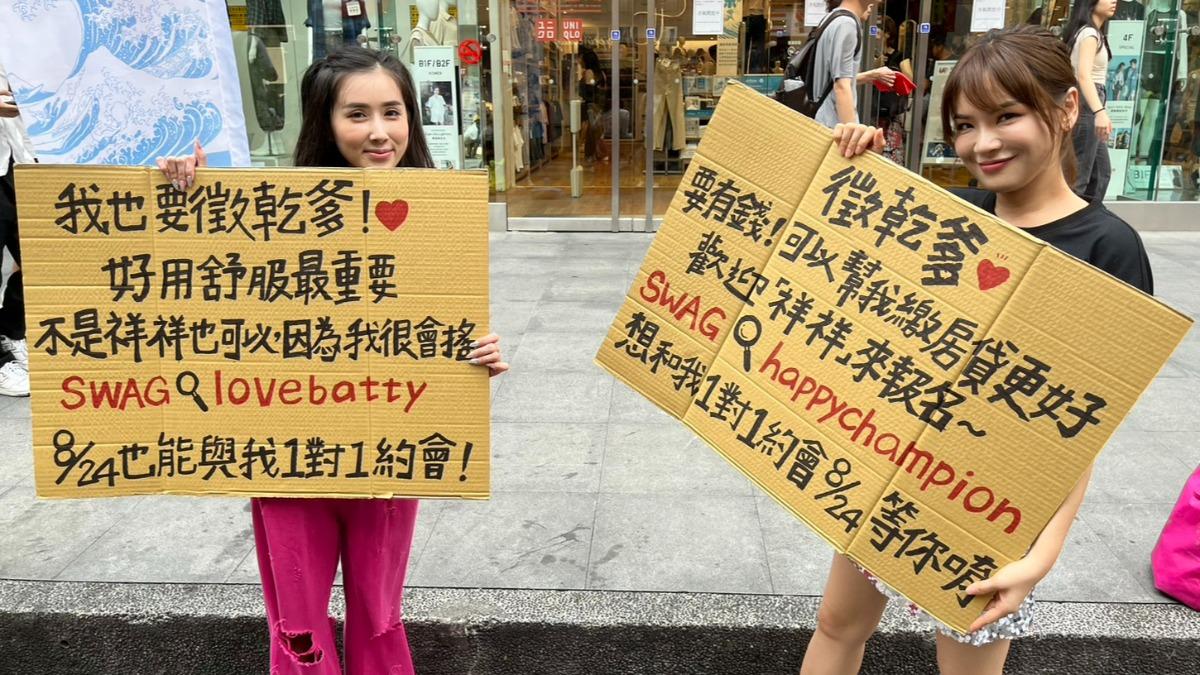 我也要徵乾爹!
好用舒服最重要
不是祥祥也可以,因為我很會搖
SWAG lovebatty
8/24也能與我1對1約會!
徵乾爹
要有錢!可以幫我繳房貸更好
歡迎「祥祥」來報名~
SWAG happychampion
想和我1對1約會8/24等你唷
B1F/B2F
UNIQLO
4F
SPECIAL